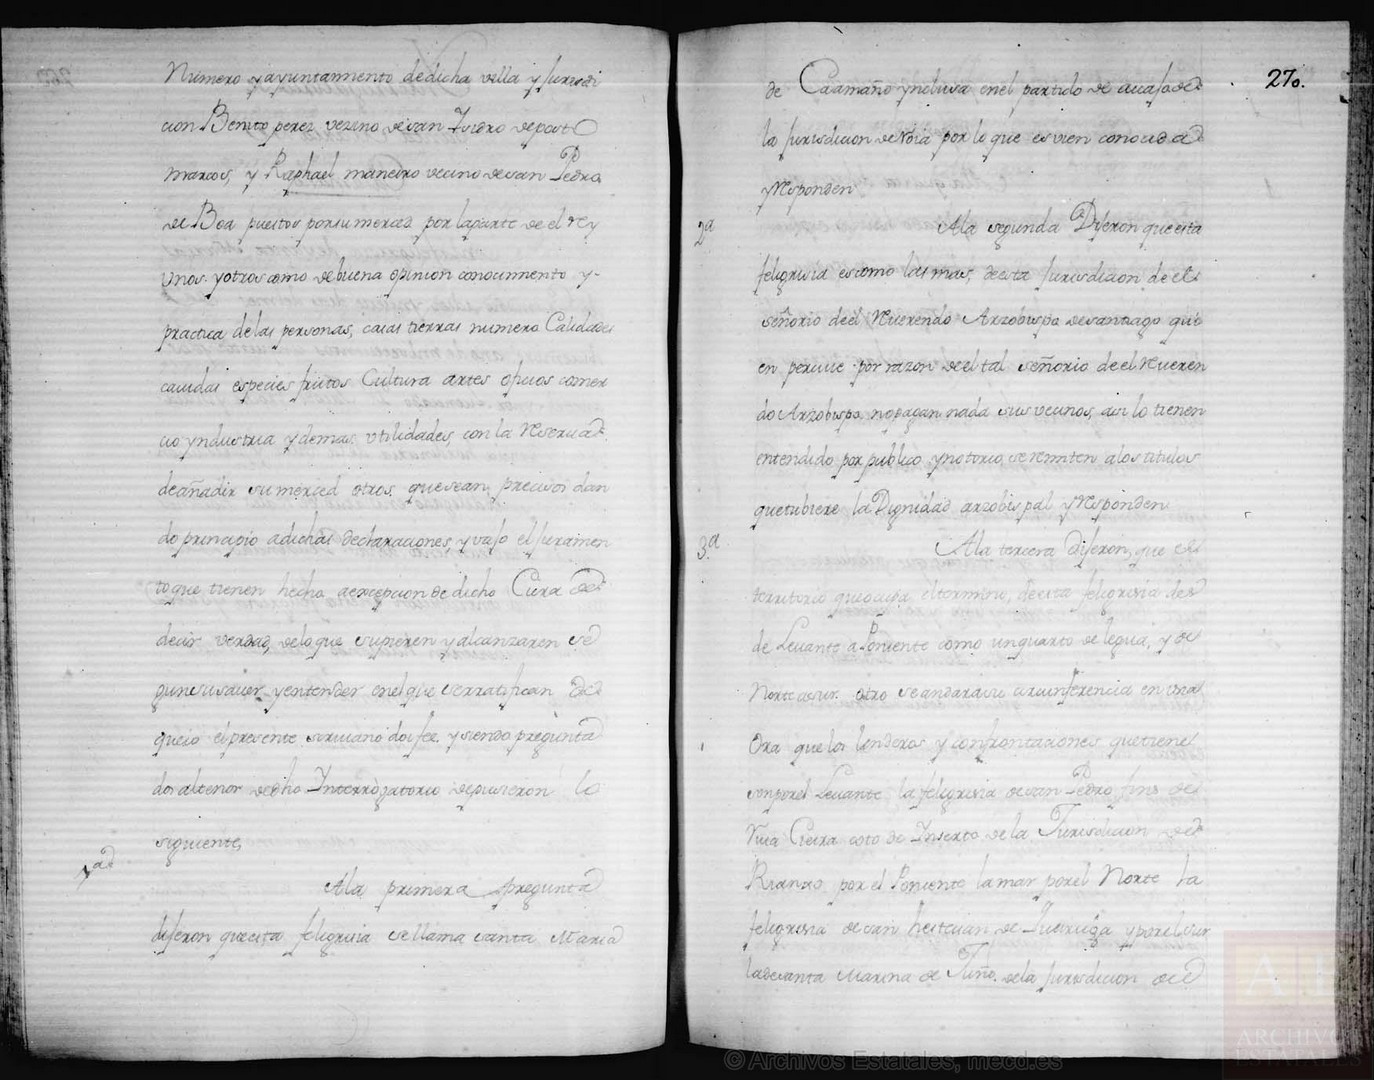 Numero y ayuntamiento de dicha villa y Jurisdi
cion Benito perez vezino de san Isidro de post
marcos, y Raphael maneiro vecino de san Pedro
de Boa puestos por su merced por la parte de el rey
Unos y otros como de buena opinion conocimiento y
practica de las personas, casas tierras numero Calidades
caudas especies frutos Cultura artes oficios comer
cio yndustria y demas utilidades, con la reserva de
de añadir su merced otros que sean precisos dan
do principio a dichas declaraciones, y vajo el Juramen
to que tienen hecho a excepcion de dicho Cura de
decir verdad, de lo que supieren y alcanzaren se
gun su saver y entender en el que se rratifican de
que io el presente scriuano doi fee y siendo pregunta
dos al tenor de dho Interrogatorio depusieron lo
siguiente,
1ª
A la primera pregunta
dijeron que esta feligresia se llama santa Maria
270.
de Caamaño ynclusa en el partido de
la Jurisdicion de Noia por lo que es vien conocida
y responden
2ª
A la segunda Dijeron que esta
feligresia es como las mas, de esta Jurisdicion de el
señorio de el Reverendo Arzobispo de santiago que
en percive por razon de el tal señorio de el Reveren
do Arzobispo no pagan nada sus vecinos, asi lo tienen
entendido por publico y notorio, se remiten a los titulos
que tubiere la Dignidad arzobispal y responden
3ª
A la tercera dijeron, que el
territorio que ocupa el termino, de esta feligresia es
de Levante a Poniente como un quarto de legua, y de
Norte a sur otro se andara su circunferencia en una
Ora que los linderos y confrontaciones que tiene
son por el Levante la feligresia de san Pedro fins de
Coto de Inserto de la Jurisdicion de
Rianxo por el Poniente la mar por el Norte la
feligresia de san de y por el sur
la de santa Marina de Juño de la Jurisdicion de
© Archivos Estatales, mecd.es
A.E
ARCHIVOS
ESTATALES